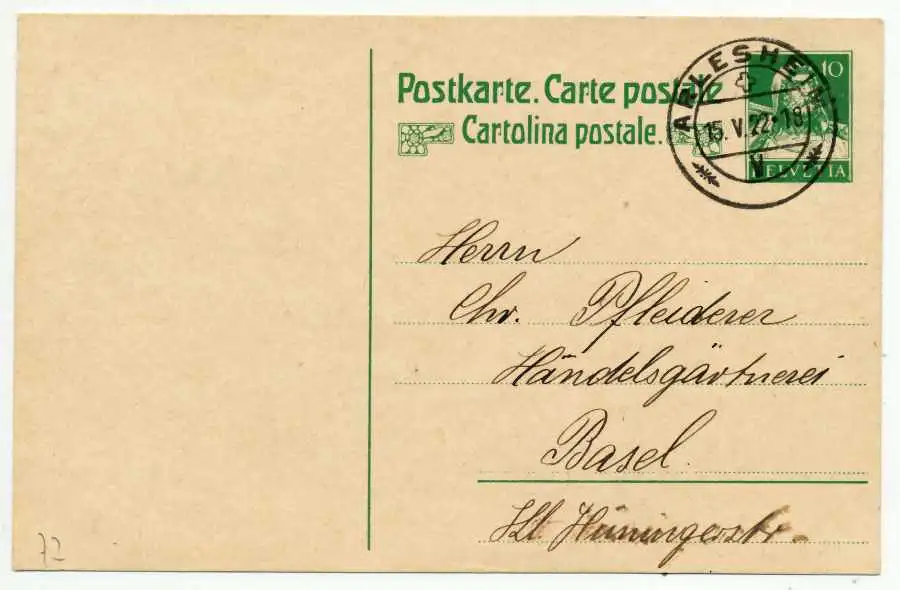 Postkarte. Carte postale
Cartolina postale.
ARLESHEIM
15. V. 22-18
V
10
HELVETIA
Herrn
Chr. Pfleiderer
Händelsgärtnerei
Basel.
Kl. Hüningerstr.
72